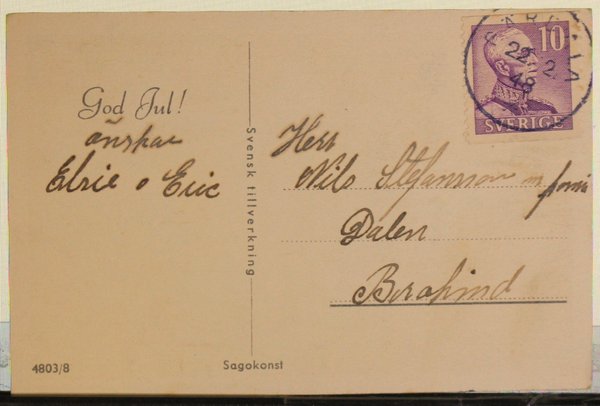 God Jul!
önskar
Elsie o Eric
Svensk tillverkning
4803/8
Sagokonst
10
SVERIGE
22.
2
48
Herr
Nils Stefansson m
Dalen